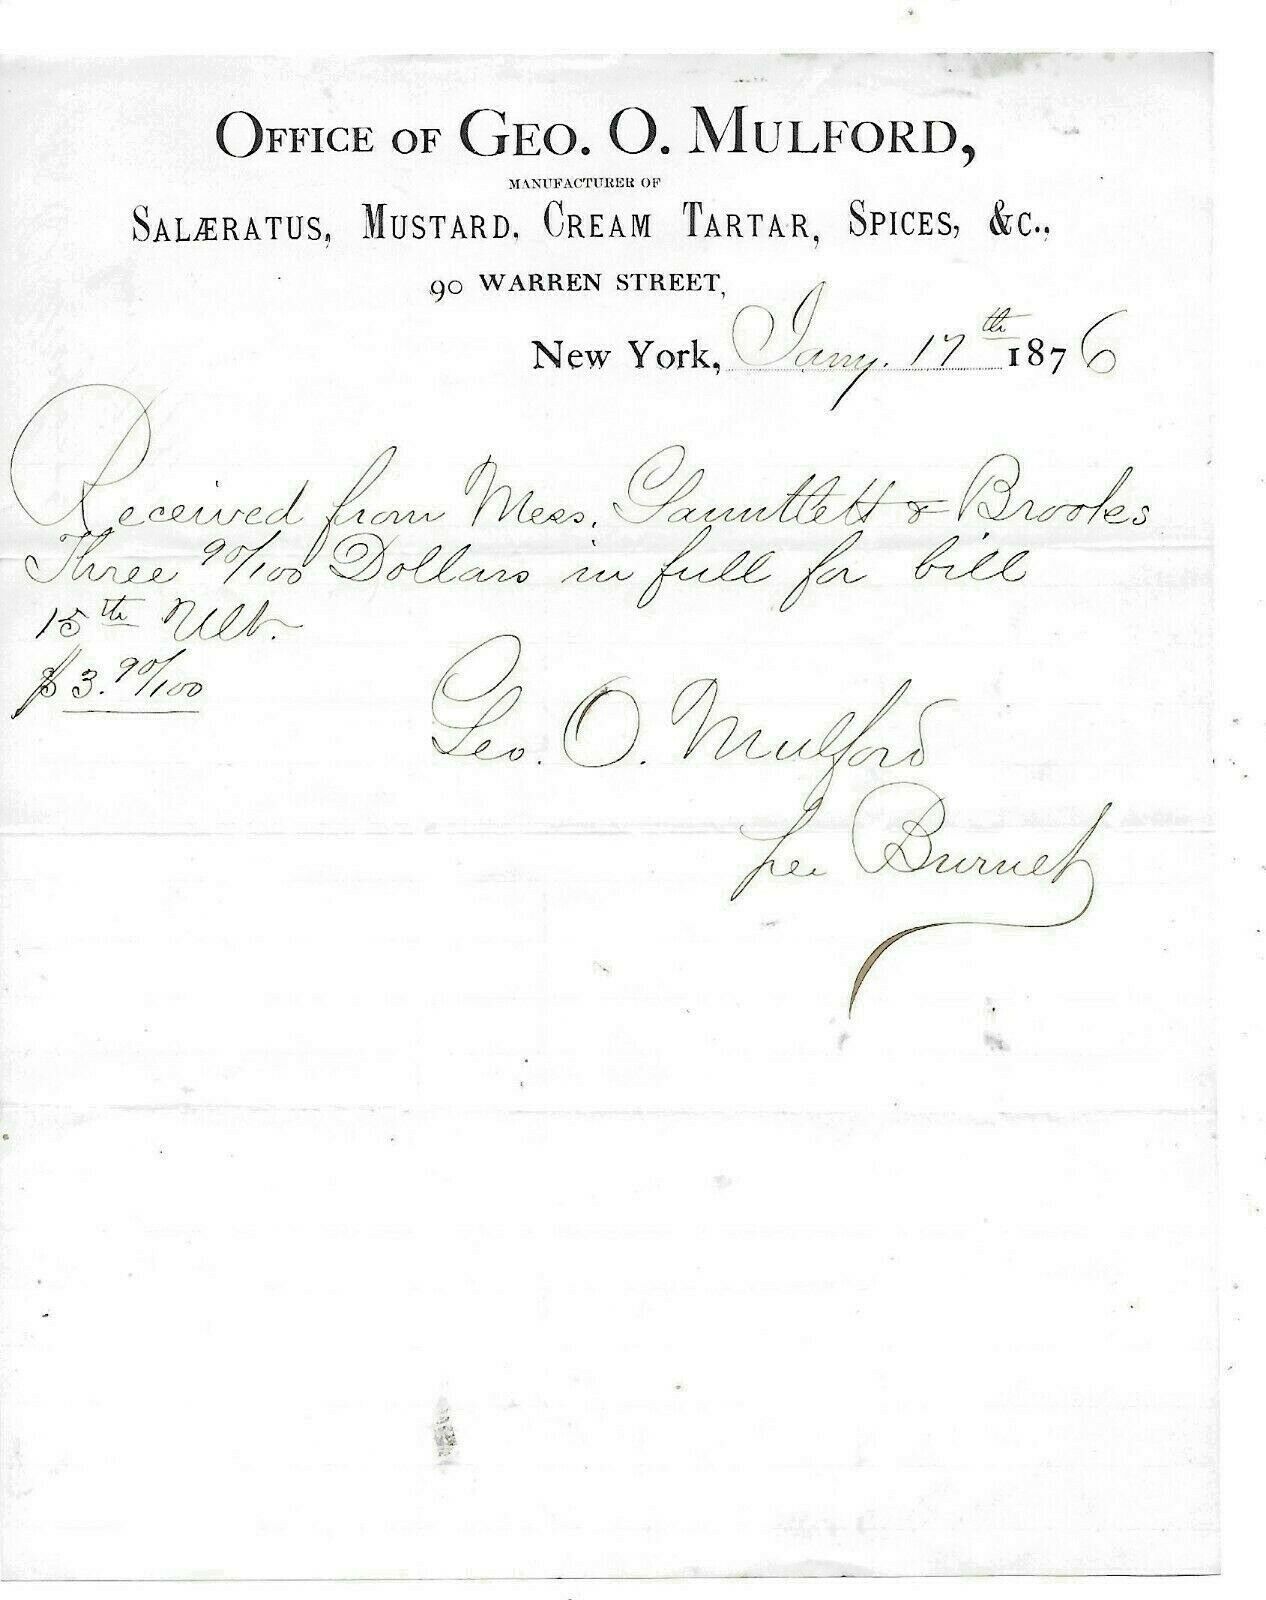 OFFICE OF GEO. O. MULFORD,
MANUFACTURER OF
SALÆRATUS, MUSTARD, CREAM TARTAR, SPICES, &C.,
90 WARREN STREET,
New York, Jany. 17th 1876
Received from Mess. Gauntlett & Brooks
Three 90/100 Dollars in full for bill
15th Ult.
$3.90/100
Geo. O. Mulford
per Burnet